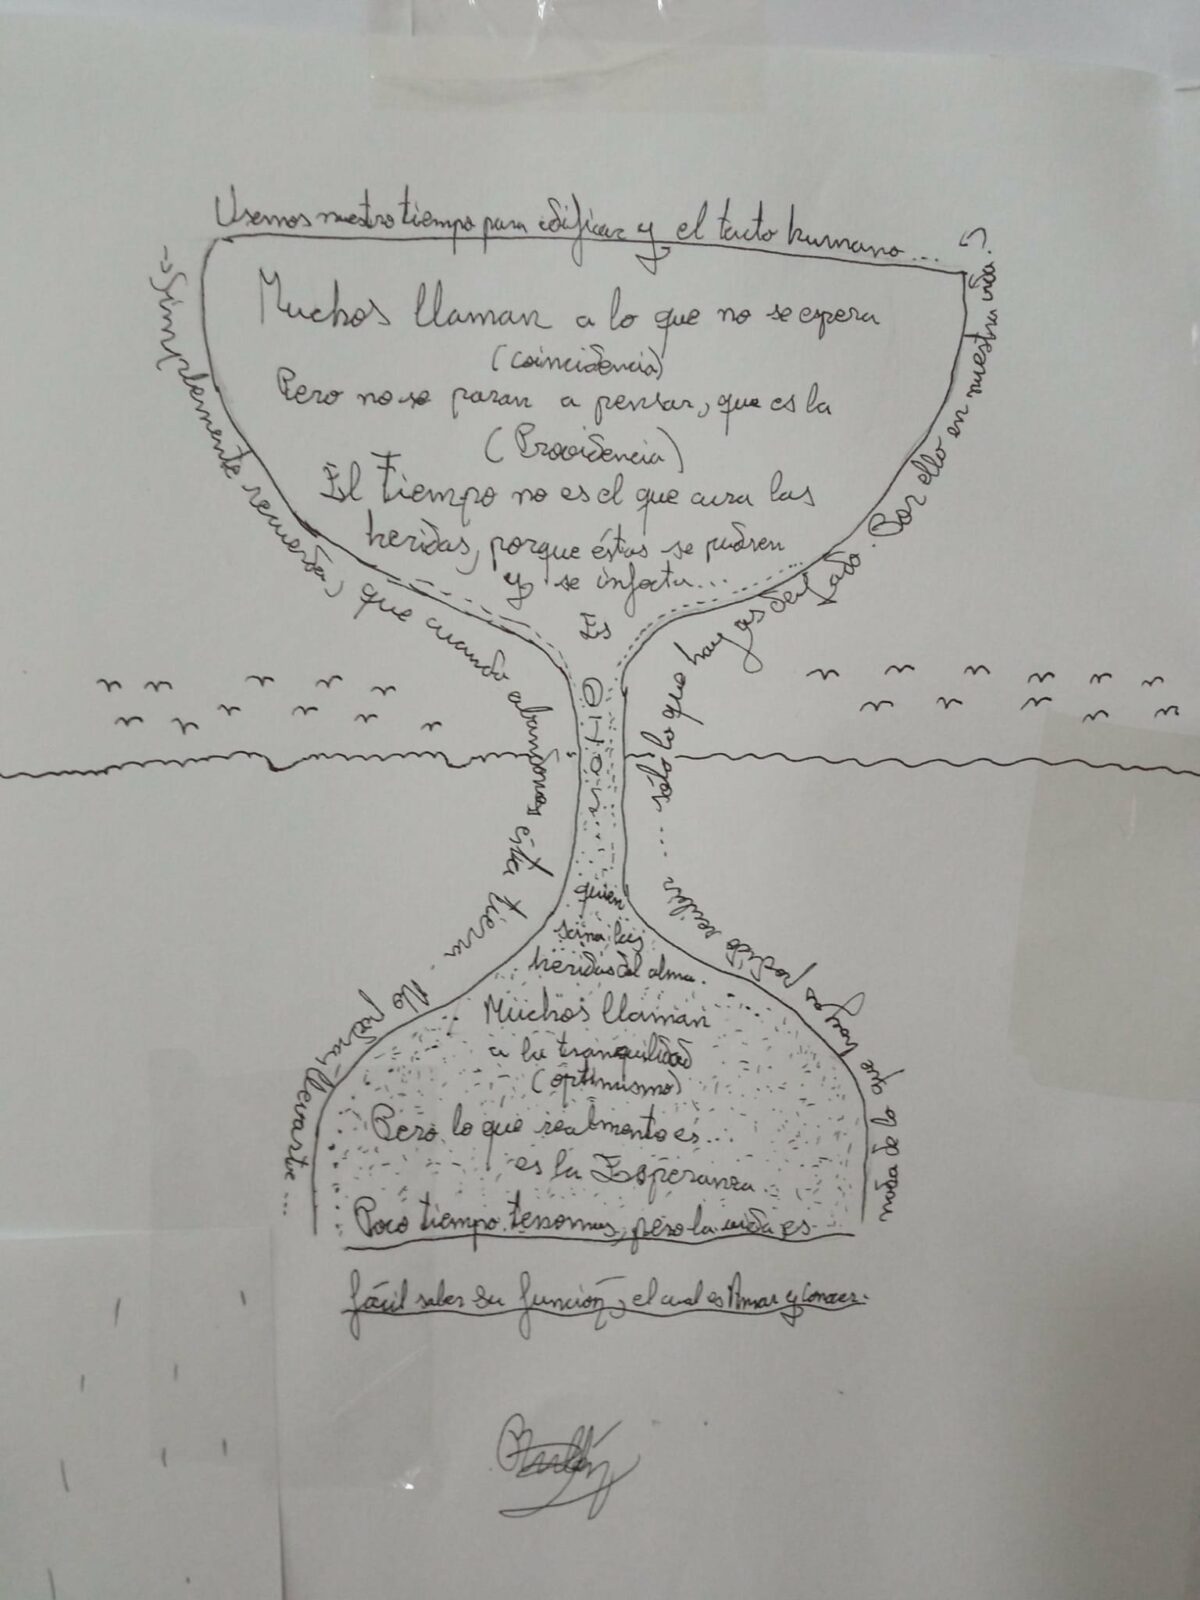 Usemos nuestro tiempo para edificar y el tacto humano...
Muchos llaman a lo que no se espera
(coincidencia)
Pero no se paran a pensar, que es la
(Providencia)
El Tiempo no es el que cura las
heridas, porque éstas se pudren
y se infecta...
Es
quien
sana las
heridas del alma.
Muchos llaman
a la tranquilidad
(optimismo)
Pero lo que realmente es...
es la Esperanza
Poco tiempo tenemos, pero la vida es
fácil saber su función, el cual es Amar y Conocer.
Simplemente recuerda, que cuando abandonas ésta tierra. No podrá llevarte...
nada de lo que hayas podido recibir... sólo lo que hayas dado. Por ello en nuestra vida